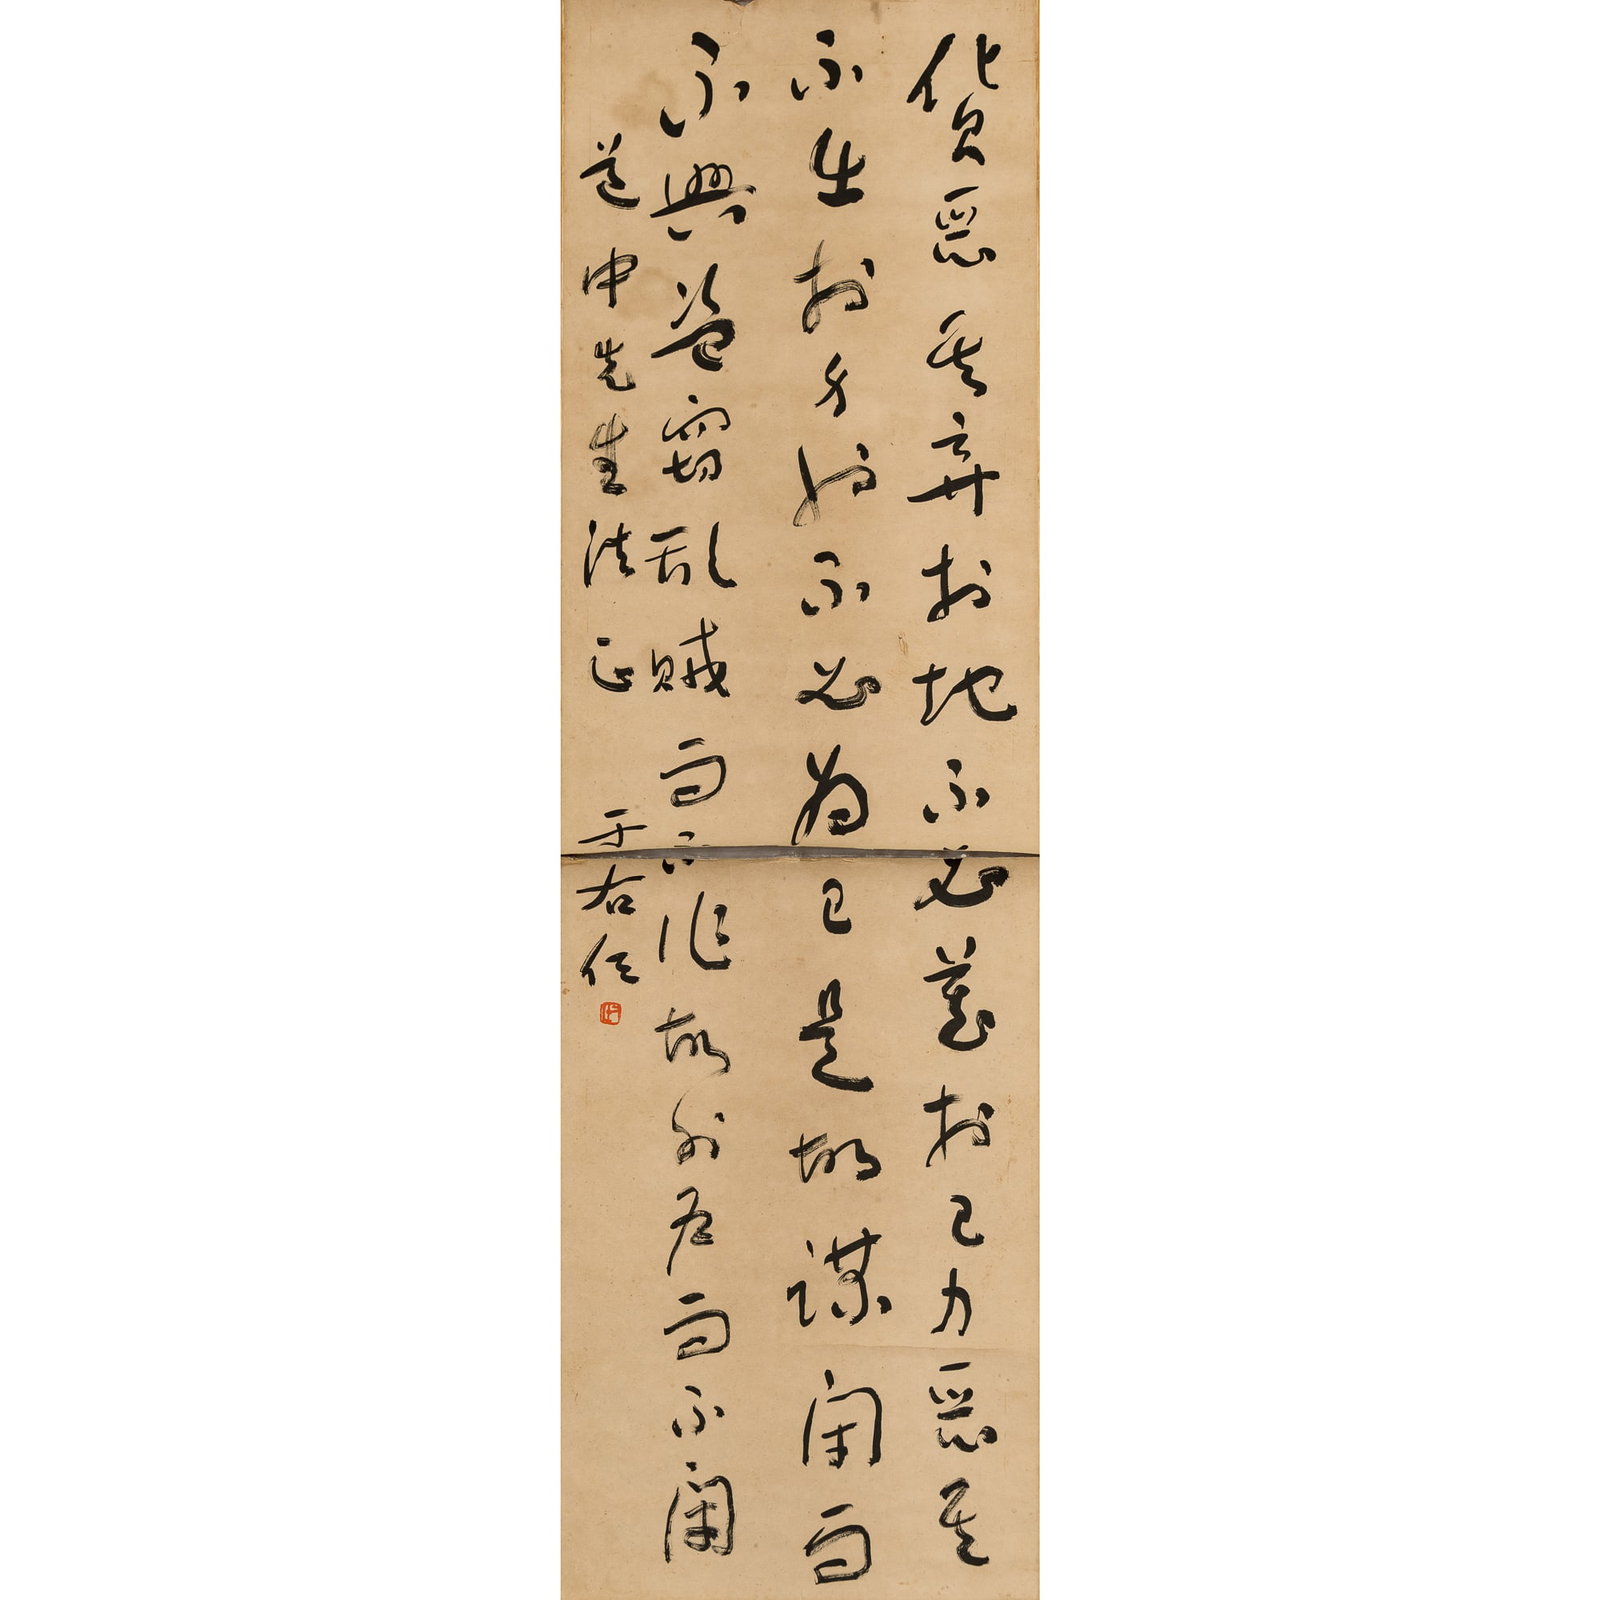 貨惡其棄於地不必藏於己力惡其
不出於身不必為己是故謀閉而
不興盜竊乱賊而不作故外户而不閉
道申先生法正 于右任